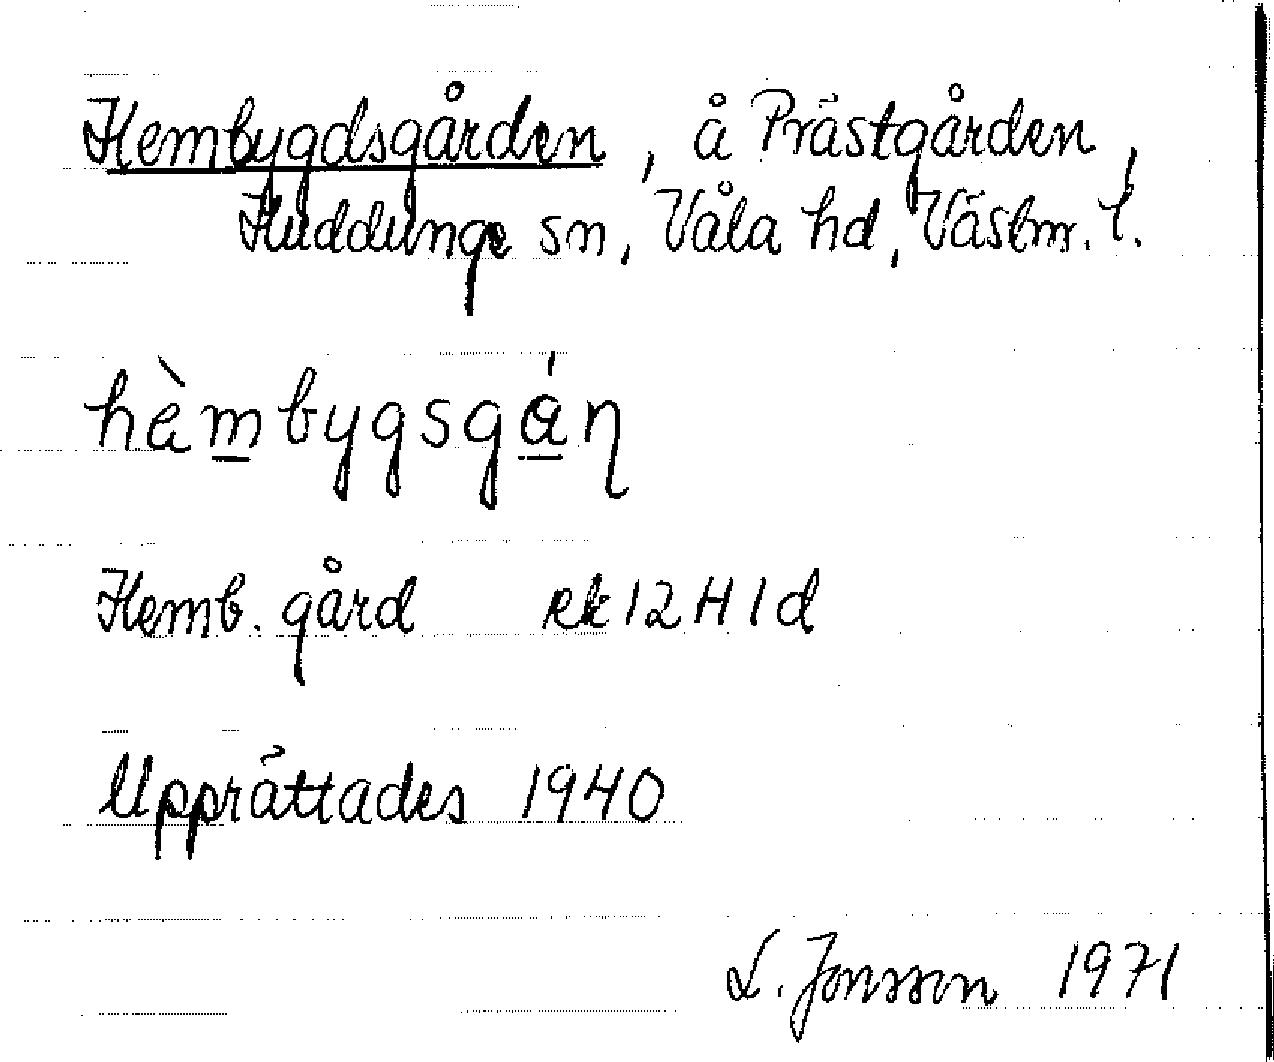 Hembygdsgården, å Prästgården,
Huddunge sn, Våla hd, Västm. l.
hèmbygsgán
Hemb. gård ek 12 H 1 d
Upprättades 1940
L. Jonsson 1971